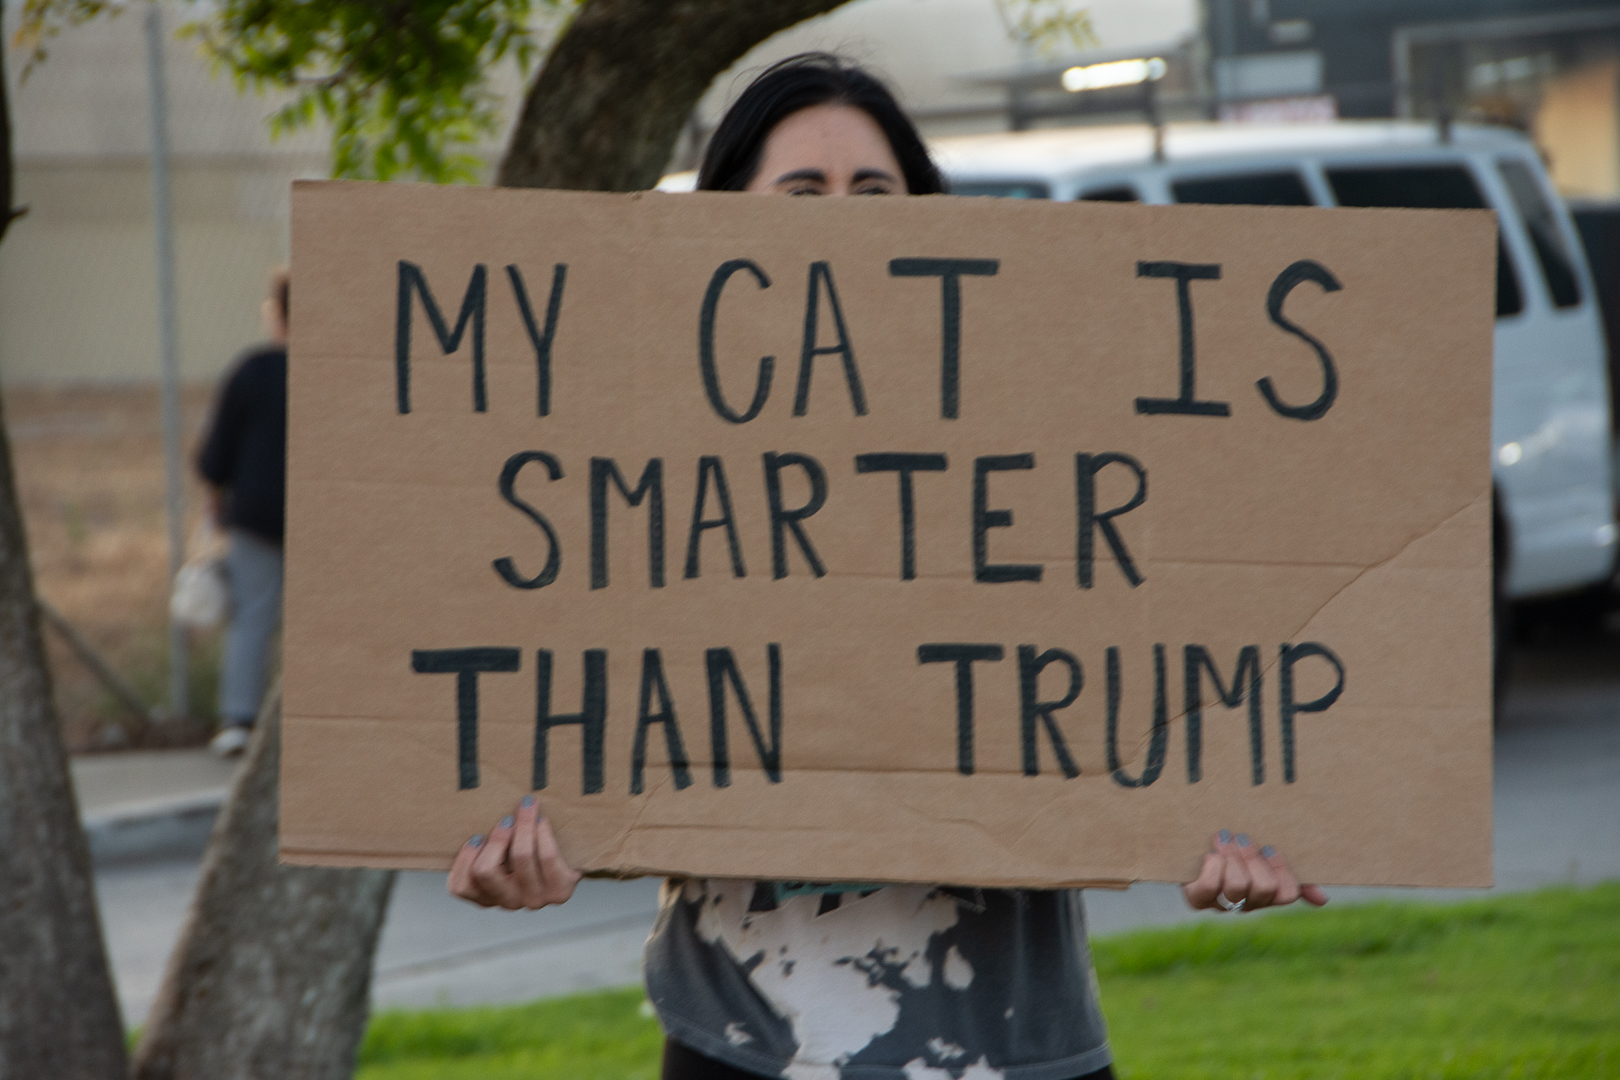 MY CAT IS
SMARTER
THAN TRUMP